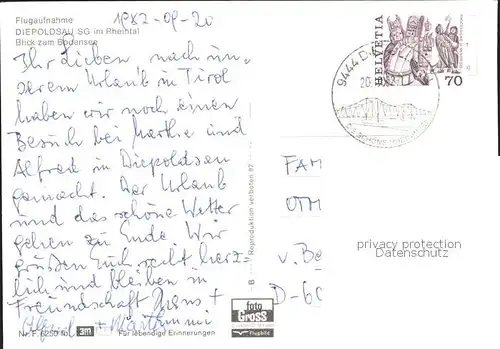 Flugaufnahme
DIEPOLDSAU SG im Rheintal
Blick zum Bodensee
1982-09-20
Ihr Lieben, nach un-
serem Urlaub in Tirol
haben wir noch einen
Besuch bei Marthe und
Alfred in Diepoldsau
gemacht. Der Urlaub
und das schöne Wetter
gehen zu Ende. Wir
grüßen Euch recht herz-
lich und bleiben in
Freundschaft Hans +
+
Nr. F. 6250 fbl. 3m Für lebendige Erinnerungen
B Reproduktion verboten 87
foto
GROSS
Flugbild
HELVETIA
70
9444 D
20.
FAM
OTH
v. Be
D-60
privacy protection
Datenschutz